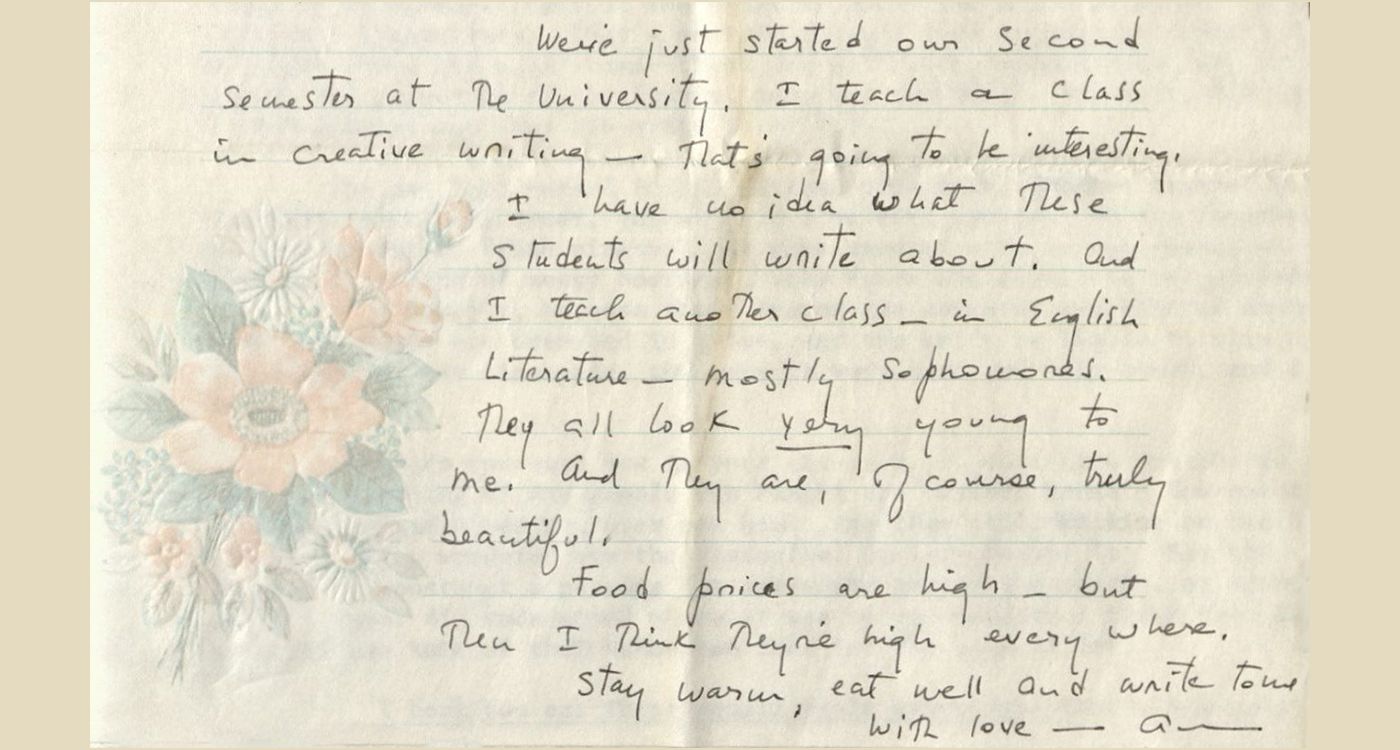 We're just started our second
semester at the University. I teach a class
in creative writing — that's going to be interesting.
I have no idea what these
students will write about. And
I teach another class — in English
Literature — mostly sophomores.
They all look very young to
me. And they are, of course, truly
beautiful.
Food prices are high — but
then I think they're high every where.
Stay warm, eat well and write to me
With love — a